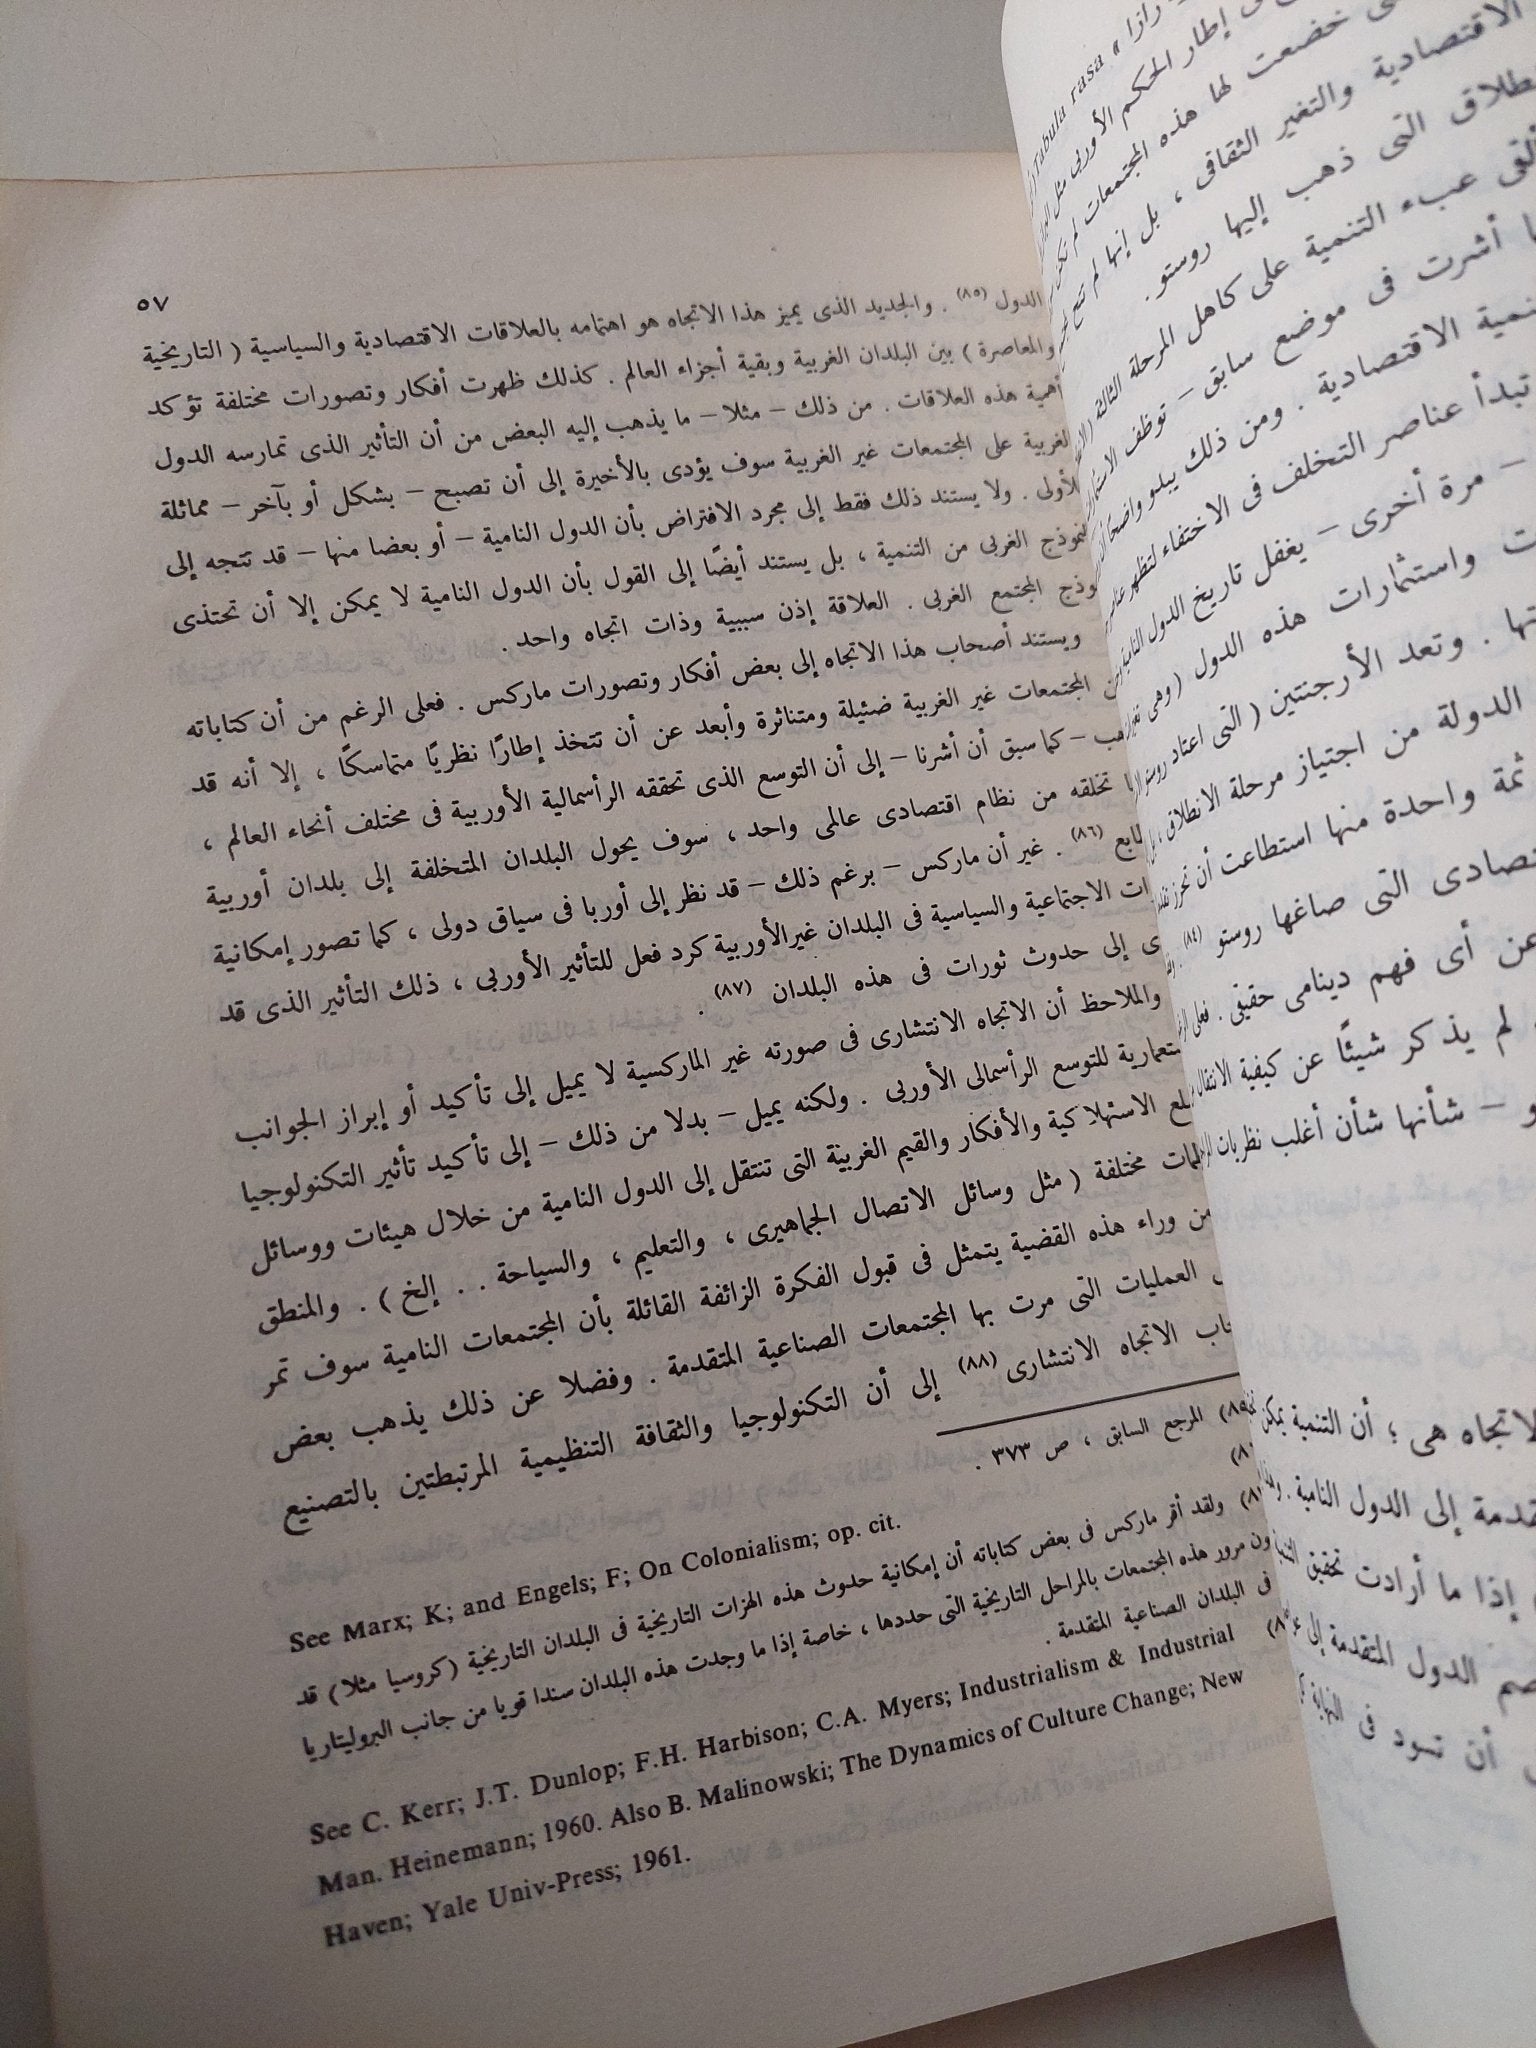 ٥٧
الدول (٨٥) . والجديد الذى يميز هذا الاتجاه هو اهتمامه بالعلاقات الاقتصادية والسياسية ( التاريخية
والمعاصرة ) بين البلدان الغربية وبقية أجزاء العالم . كذلك ظهرت أفكار وتصورات مختلفة تؤكد
أهمية هذه العلاقات . من ذلك – مثلا – ما يذهب إليه البعض من أن التأثير الذى تمارسه الدول
الغربية على المجتمعات غير الغربية سوف يؤدى بالأخيرة إلى أن تصبح – بشكل أو بآخر – مماثلة
للأولى . ولا يستند ذلك فقط إلى مجرد الافتراض بأن الدول النامية – أو بعضا منها – قد تتجه إلى
النموذج الغربى من التنمية ، بل يستند أيضًا إلى القول بأن الدول النامية لا يمكن إلا أن تحتذى
نموذج المجتمع الغربى . العلاقة إذن سببية وذات اتجاه واحد .
ويستند أصحاب هذا الاتجاه إلى بعض أفكار وتصورات ماركس . فعلى الرغم من أن كتاباته
عن المجتمعات غير الغربية ضئيلة ومتناثرة وأبعد عن أن تتخذ إطارًا نظريًا متماسكًا ، إلا أنه قد
– كما سبق أن أشرنا – إلى أن التوسع الذى تحققه الرأسمالية الأوربية فى مختلف أنحاء العالم ،
تخلقه من نظام اقتصادى عالمى واحد ، سوف يحول البلدان المتخلفة إلى بلدان أوربية
(٨٦) . غير أن ماركس – برغم ذلك – قد نظر إلى أوربا فى سياق دولى ، كما تصور إمكانية
الاجتماعية والسياسية فى البلدان غير الأوربية كرد فعل للتأثير الأوربى ، ذلك التأثير الذى قد
إلى حدوث ثورات فى هذه البلدان (٨٧) .
والملاحظ أن الاتجاه الانتشارى فى صورته غير الماركسية لا يميل إلى تأكيد أو إبراز الجوانب
للتوسع الرأسمالى الأوربى . ولكنه يميل – بدلا من ذلك – إلى تأكيد تأثير التكنولوجيا
الاستهلاكية والأفكار والقيم الغربية التى تنتقل إلى الدول النامية من خلال هيئات ووسائل
مختلفة ( مثل وسائل الاتصال الجماهيرى ، والتعليم ، والسياحة . . إلخ ) . والمنطق
من وراء هذه القضية يتمثل فى قبول الفكرة الزائفة القائلة بأن المجتمعات النامية سوف تمر
العمليات التى مرت بها المجتمعات الصناعية المتقدمة . وفضلا عن ذلك يذهب بعض
الاتجاه الانتشارى (٨٨) إلى أن التكنولوجيا والثقافة التنظيمية المرتبطتين بالتصنيع
المرجع السابق ، ص ٣٧٣ .
See Marx; K; and Engels; F; On Colonialism; op. cit.
ولقد أقر ماركس فى بعض كتاباته أن إمكانية حدوث هذه الهزات التاريخية فى البلدان التاريخية (كروسيا مثلا) قد
مرور هذه المجتمعات بالمراحل التاريخية التى حددها ، خاصة إذا ما وجدت هذه البلدان سندا قويا من جانب البروليتاريا
فى البلدان الصناعية المتقدمة .
See C. Kerr; J.T. Dunlop; F.H. Harbison; C.A. Myers; Industrialism & Industrial
Man. Heinemann; 1960. Also B. Malinowski; The Dynamics of Culture Change; New
Haven; Yale Univ-Press; 1961.
Tabula rasa
إطار الحكم الأوربى مثل
خضعت لها هذه المجتمعات لم تكن
الاقتصادية والتغير الثقافى ، بل إنها لم تتح
التى ذهب إليها روستو .
عبء التنمية على كاهل المرحلة الثالثة
أشرت فى موضع سابق – توظف
الاقتصادية . ومن ذلك يبدو واضحًا
تبدأ عناصر التخلف فى الاختفاء لتظهر
– مرة أخرى – يغفل تاريخ الدول النامية
واستثمارات هذه الدول ( وهى
. وتعد الأرجنتين ( التى اعتاد روستو
الدولة من اجتياز مرحلة الانطلاق ،
ثمة واحدة منها استطاعت أن تحرز
التى صاغها روستو (٨٤) .
عن أى فهم دينامى حقيقى . فعلى
لم يذكر شيئًا عن كيفية الانتقال
– شأنها شأن أغلب نظريات
الاتجاه هى ؛ أن التنمية يمكن
إلى الدول النامية .
إذا ما أرادت تحقيق
الدول المتقدمة إلى
أن تسود فى النهاية